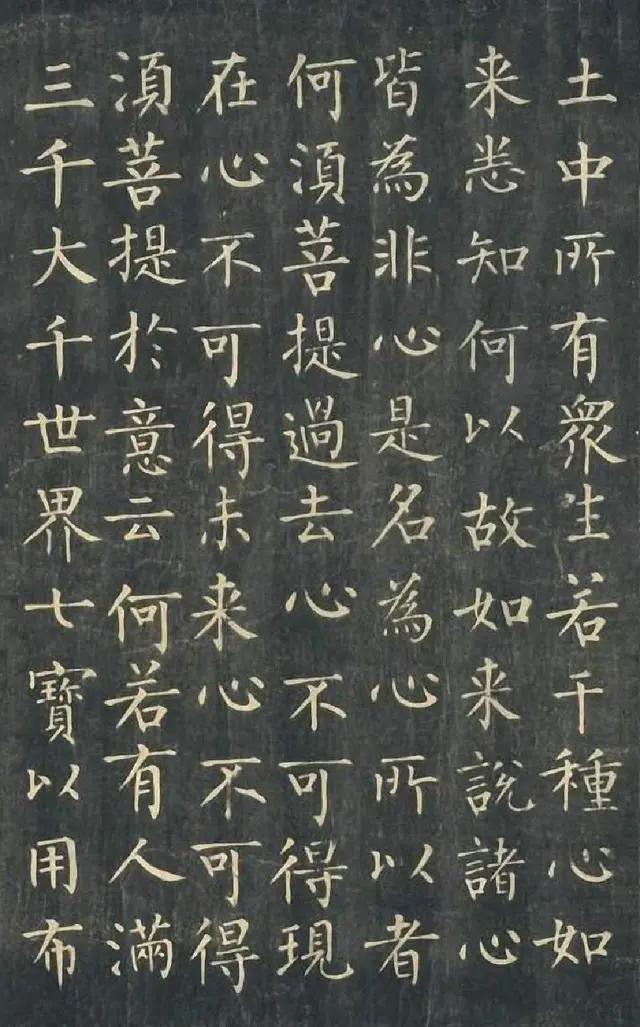 土中所有衆生若干種心如
来悉知何以故如来說諸心
皆為非心是名為心所以者
何湏菩提過去心不可得現
在心不可得未来心不可得
湏菩提於意云何若有人滿
三千大千世界七寳以用布